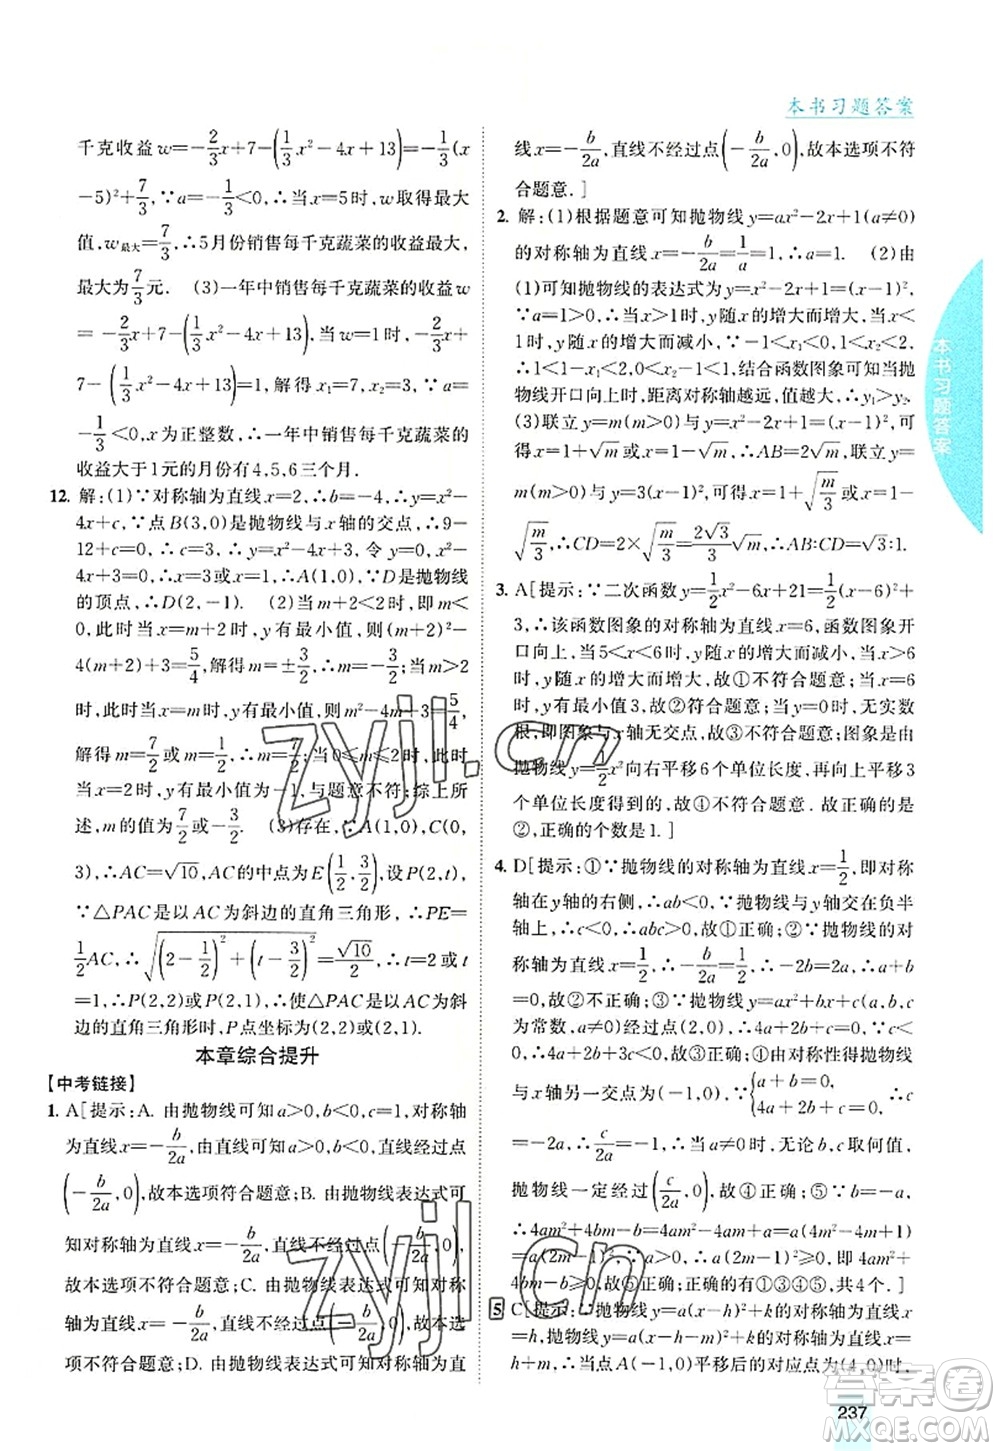 本书习题答案
千克收益w=-2/3x+7-(1/3x²-4x+13)=-1/3(x
-5)²+7/3,∵a=-1/3<0,∴当x=5时,w取得最大
值,w最大=7/3,∴5月份销售每千克蔬菜的收益最大,
最大为7/3元. (3)一年中销售每千克蔬菜的收益w
=-2/3x+7-(1/3x²-4x+13),当w=1时,-2/3x+
7-(1/3x²-4x+13)=1,解得x₁=7,x₂=3,∵a=
-1/3<0,x为正整数,∴一年中销售每千克蔬菜的
收益大于1元的月份有4,5,6三个月.
12. 解:(1)∵对称轴为直线x=2,∴b=-4,∴y=x²-
4x+c,∵点B(3,0)是抛物线与x轴的交点,∴9-
12+c=0,∴c=3,∴y=x²-4x+3,令y=0,x²-
4x+3=0,∴x=3或x=1,∴A(1,0),∵D是抛物线
的顶点,∴D(2,-1). (2)当m+2<2,即m<
0时,此时当x=m+2时,y有最小值,则(m+2)²-
4(m+2)+3=5/4,解得m=±3/2,∴m=-3/2;当m>
2时,此时当x=m时,y有最小值,则m²-4m+3=5/4,
解得m=7/2或m=1/2,∴m=7/2;当0≤m≤2时,此
时当x=2时,y有最小值-1,与题意不符;综上所
述,m的值为7/2或-3/2. (3)存在,∵A(1,0),C(0,
3),∴AC=√10,AC的中点为E(1/2,3/2),设P(2,t),
∵△PAC是以AC为斜边的直角三角形,∴PE=
1/2AC,∴√((2-1/2)²+(t-3/2)²)=√10/2,∴t=2或t
=1,∴P(2,2)或P(2,1),∴使△PAC是以AC为斜
边的直角三角形时,P点坐标为(2,2)或(2,1).
本章综合提升
【中考链接】
1. A[提示:A. 由抛物线可知a>0,b<0,c=1,对称轴
为直线x=-b/2a,由直线可知a>0,b<0,直线经过点
(-b/2a,0),故本选项符合题意;B. 由抛物线表达式可
知对称轴为直线x=-b/2a,直线不经过点(-b/2a,0),
故本选项不符合题意;C. 由抛物线表达式可知对称
轴为直线x=-b/2a,直线不经过点(-b/2a,0),故本选
项不符合题意;D. 由抛物线表达式可知对称轴为直
线x=-b/2a,直线不经过点(-b/2a,0),故本选项不符
合题意.]
2. 解:(1)根据题意可知抛物线y=ax²-2x+1(a≠0)
的对称轴为直线x=-b/2a=1/a=1,∴a=1. (2)由
(1)可知抛物线的表达式为y=x²-2x+1=(x-
1)²,∵a=1>0,∴当x>1时,y随x的增大而增大,当x<
1时,y随x的增大而减小,∵-1<x₁<0,1<x₂<2,
∴1<1-x₁<2,0<x₂-1<1,结合函数图象可知当抛
物线开口向上时,距离对称轴越远,值越大,∴y₁>y₂.
(3)联立y=m(m>0)与y=x²-2x+1=(x-1)²,可
得x=1+√m或x=1-√m,∴AB=2√m,联立y=
m(m>0)与y=3(x-1)²,可得x=1+√(m/3)或x=1-
√(m/3),∴CD=2×√(m/3)=2√3/3√m,∴AB:CD=√3:1.
3. A[提示:∵二次函数y=1/2x²-6x+21=1/2(x-6)²+
3,∴该函数图象的对称轴为直线x=6,函数图象开
口向上,当5<x<6时,y随x的增大而减小,当x>6
时,y随x的增大而增大,故①不符合题意;当x=6
时,y有最小值3,故②符合题意;当y=0时,无实数
根,即图象与x轴无交点,故③不符合题意;图象是由
抛物线y=1/2x²向右平移6个单位长度,再向上平移3
个单位长度得到的,故④不符合题意.故正确的是
②,正确的个数是1.]
4. D[提示:①∵抛物线的对称轴为直线x=1/2,即对称
轴在y轴的右侧,∴ab<0,∵抛物线与y轴交在负半
轴上,∴c<0,∴abc>0,故①正确;②∵抛物线的对
称轴为直线x=1/2,∴-b/2a=1/2,∴-2b=2a,∴a+b
=0,故②不正确;③∵抛物线y=ax²+bx+c(a,b,c
为常数,a≠0)经过点(2,0),∴4a+2b+c=0,故③
正确;④∵抛物线经过点(2,0),由对称性得抛物线
与x轴另一交点为(-1,0),∴{a-b+c=0, 4a+2b+c=0,∴c
=-2a,∴c/2a=-1,∴当a≠0时,无论b,c取何值,
抛物线一定经过(c/2a,0),故④正确;⑤∵b=-a,
∴4am²+4bm-b=4am²-4am+a=a(4m²-4m+
1)=a(2m-1)²,∵a>0,∴a(2m-1)²≥0,即4am²+
4bm-b≥0,故⑤正确;正确的有①③④⑤,共4个.]
5 C[提示:∵抛物线y=a(x-m)²+k的对称轴为直线x
=m,抛物线y=a(x-m-h)²+k的对称轴为直线x=
h+m,∴当点A(1,0)平移后的对应点为(4,0)时,
本书习题答案
237
zyjl.cn
zyjl.cn
答案圈
MXQE.COM